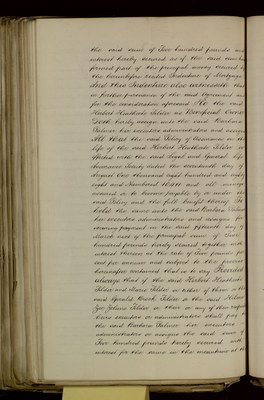 the said sum of Five hundred pounds and
interest hereby secured as if the said sum had
formed part of the principal money secured by
the hereinbefore recited Indenture of Mortgage
And this Indenture also witnesseth that
in further pursuance of the said Agreement and
for the consideration aforesaid He the said
Herbert Huntlade Tilden as Beneficial Owner
Doth hereby assign unto the said Barbara
Palmer her executors administrators and assigns
All that the said Policy of Assurance on the
life of the said Herbert Huntlade Tilden so
effected with the said Legal and General Life
Assurance Society dated the seventeenth day of
August One thousand eight hundred and eighty
eight and Numbered and all moneys
assured or to become payable by or under the
said Policy and the full benefit thereof To
hold the same unto the said Barbara Palmer
her executors administrators and assigns for
securing payment on the said fifteenth day of
March next of the principal sum of Five
hundred pounds hereby secured together with
interest thereon at the rate of four pounds per
cent per annum and subject to the proviso
hereinafter contained that is to say Provided
always that if the said Herbert Huntlade
Tilden and Tilden or either of them or the
said Gerald Brook Tilden or the said
Tilden or them or any of their respective
heirs executors or administrators shall pay to
the said Barbara Palmer her executors
administrators or assigns the said sum of
Five hundred pounds hereby secured with
interest for the same in the meantime at the